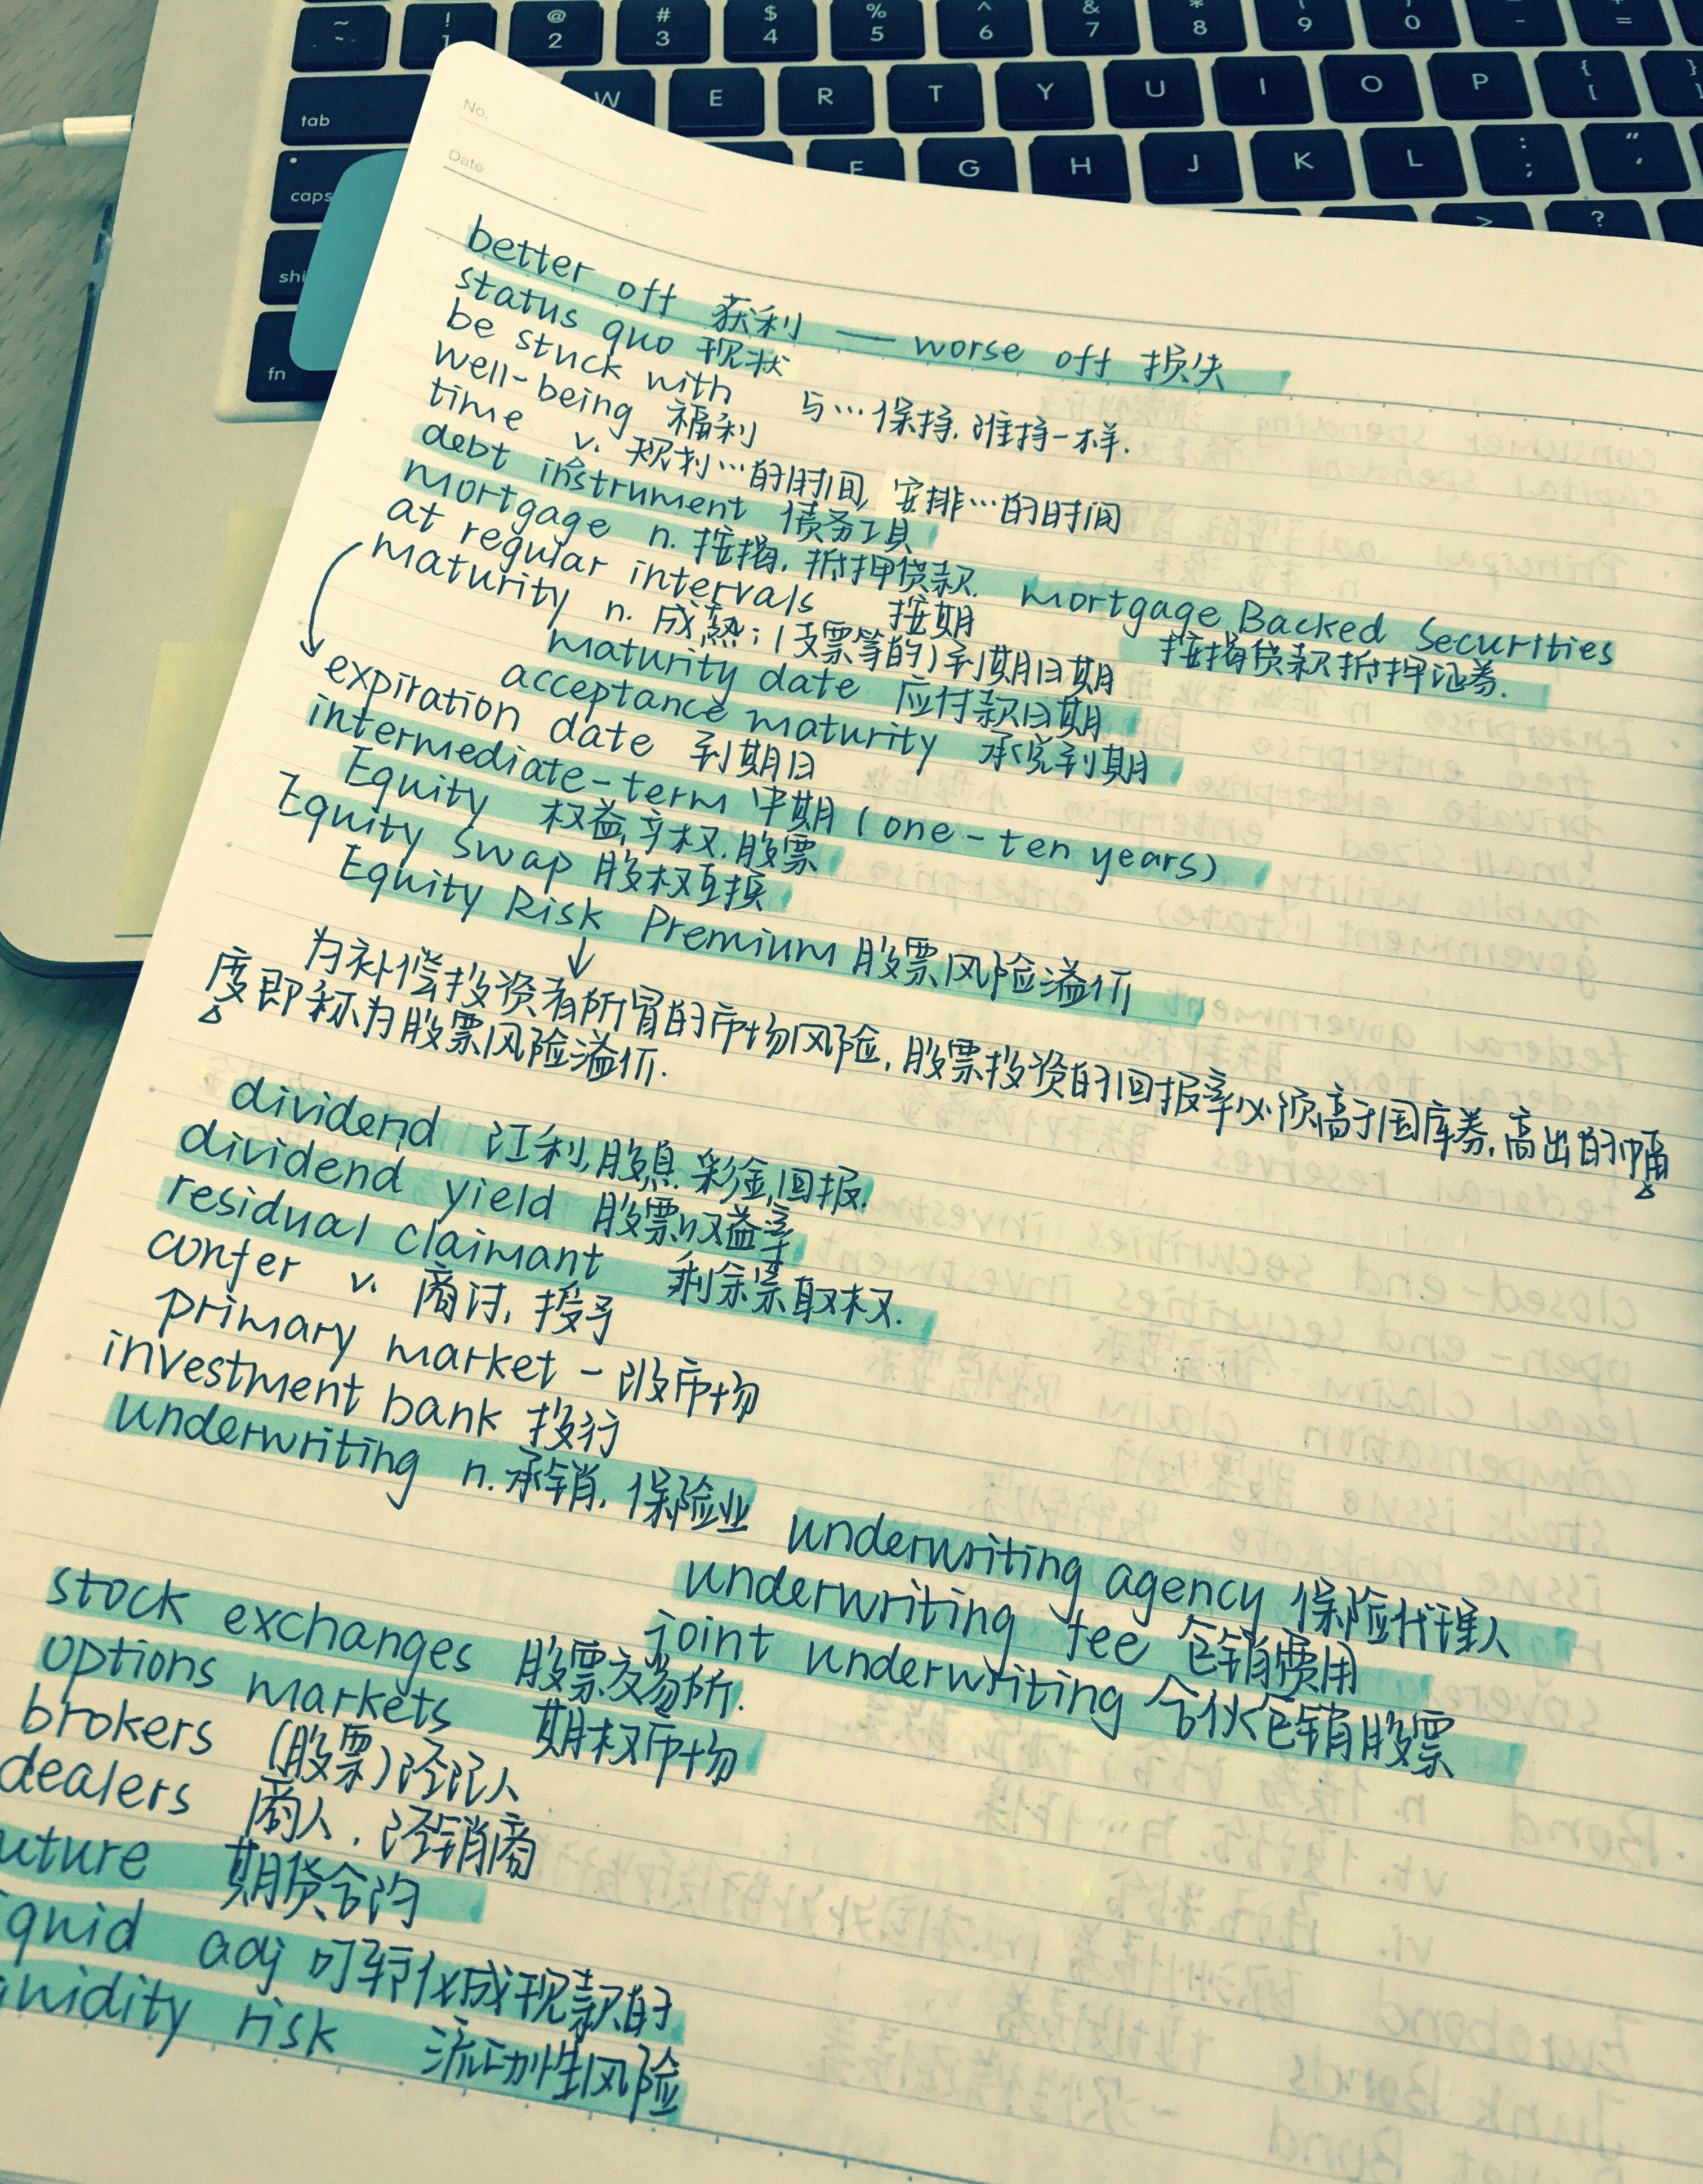 ~ ! @ 2 # 3 $ 4 % 5 ^ 6 & 7 * 8 ( 9 ) 0 - + =
tab W E R T Y U I O P { [ } ]
caps F G H J K L : ; " '
shi > ?
fn
No.
Date
better off 获利 — worse off 损失
status quo 现状
be stuck with 与…保持,维持一样.
well-being 福利
time v. 规划…的时间, 安排…的时间
debt instrument 债务工具
mortgage n. 按揭. 抵押贷款. Mortgage Backed Securities
按揭贷款抵押证券.
at regular intervals 按期
maturity n. 成熟; (支票等的) 到期日期
maturity date 应付款日期
acceptance maturity 承兑到期
expiration date 到期日
intermediate-term 中期 (one-ten years)
Equity 权益, 产权. 股票
Equity Swap 股权互换
Equity Risk Premium 股票风险溢价
为补偿投资者所冒的市场风险, 股票投资的回报率必须高于国库券, 高出的幅
度即称为股票风险溢价.
dividend 红利, 股息. 彩金, 回报.
dividend yield 股票收益率
residual claimant 剩余索取权.
confer v. 商讨, 授予
primary market 一级市场
investment bank 投行
underwriting n. 承销. 保险业
underwriting agency 保险代理人
underwriting fee 包销费用
joint underwriting 合伙包销股票
stock exchanges 股票交易所.
options markets 期权市场
brokers (股票) 经纪人
dealers 商人. 经销商
uture 期货合约
iquid adj 可转化成现款的
uidity risk 流动性风险